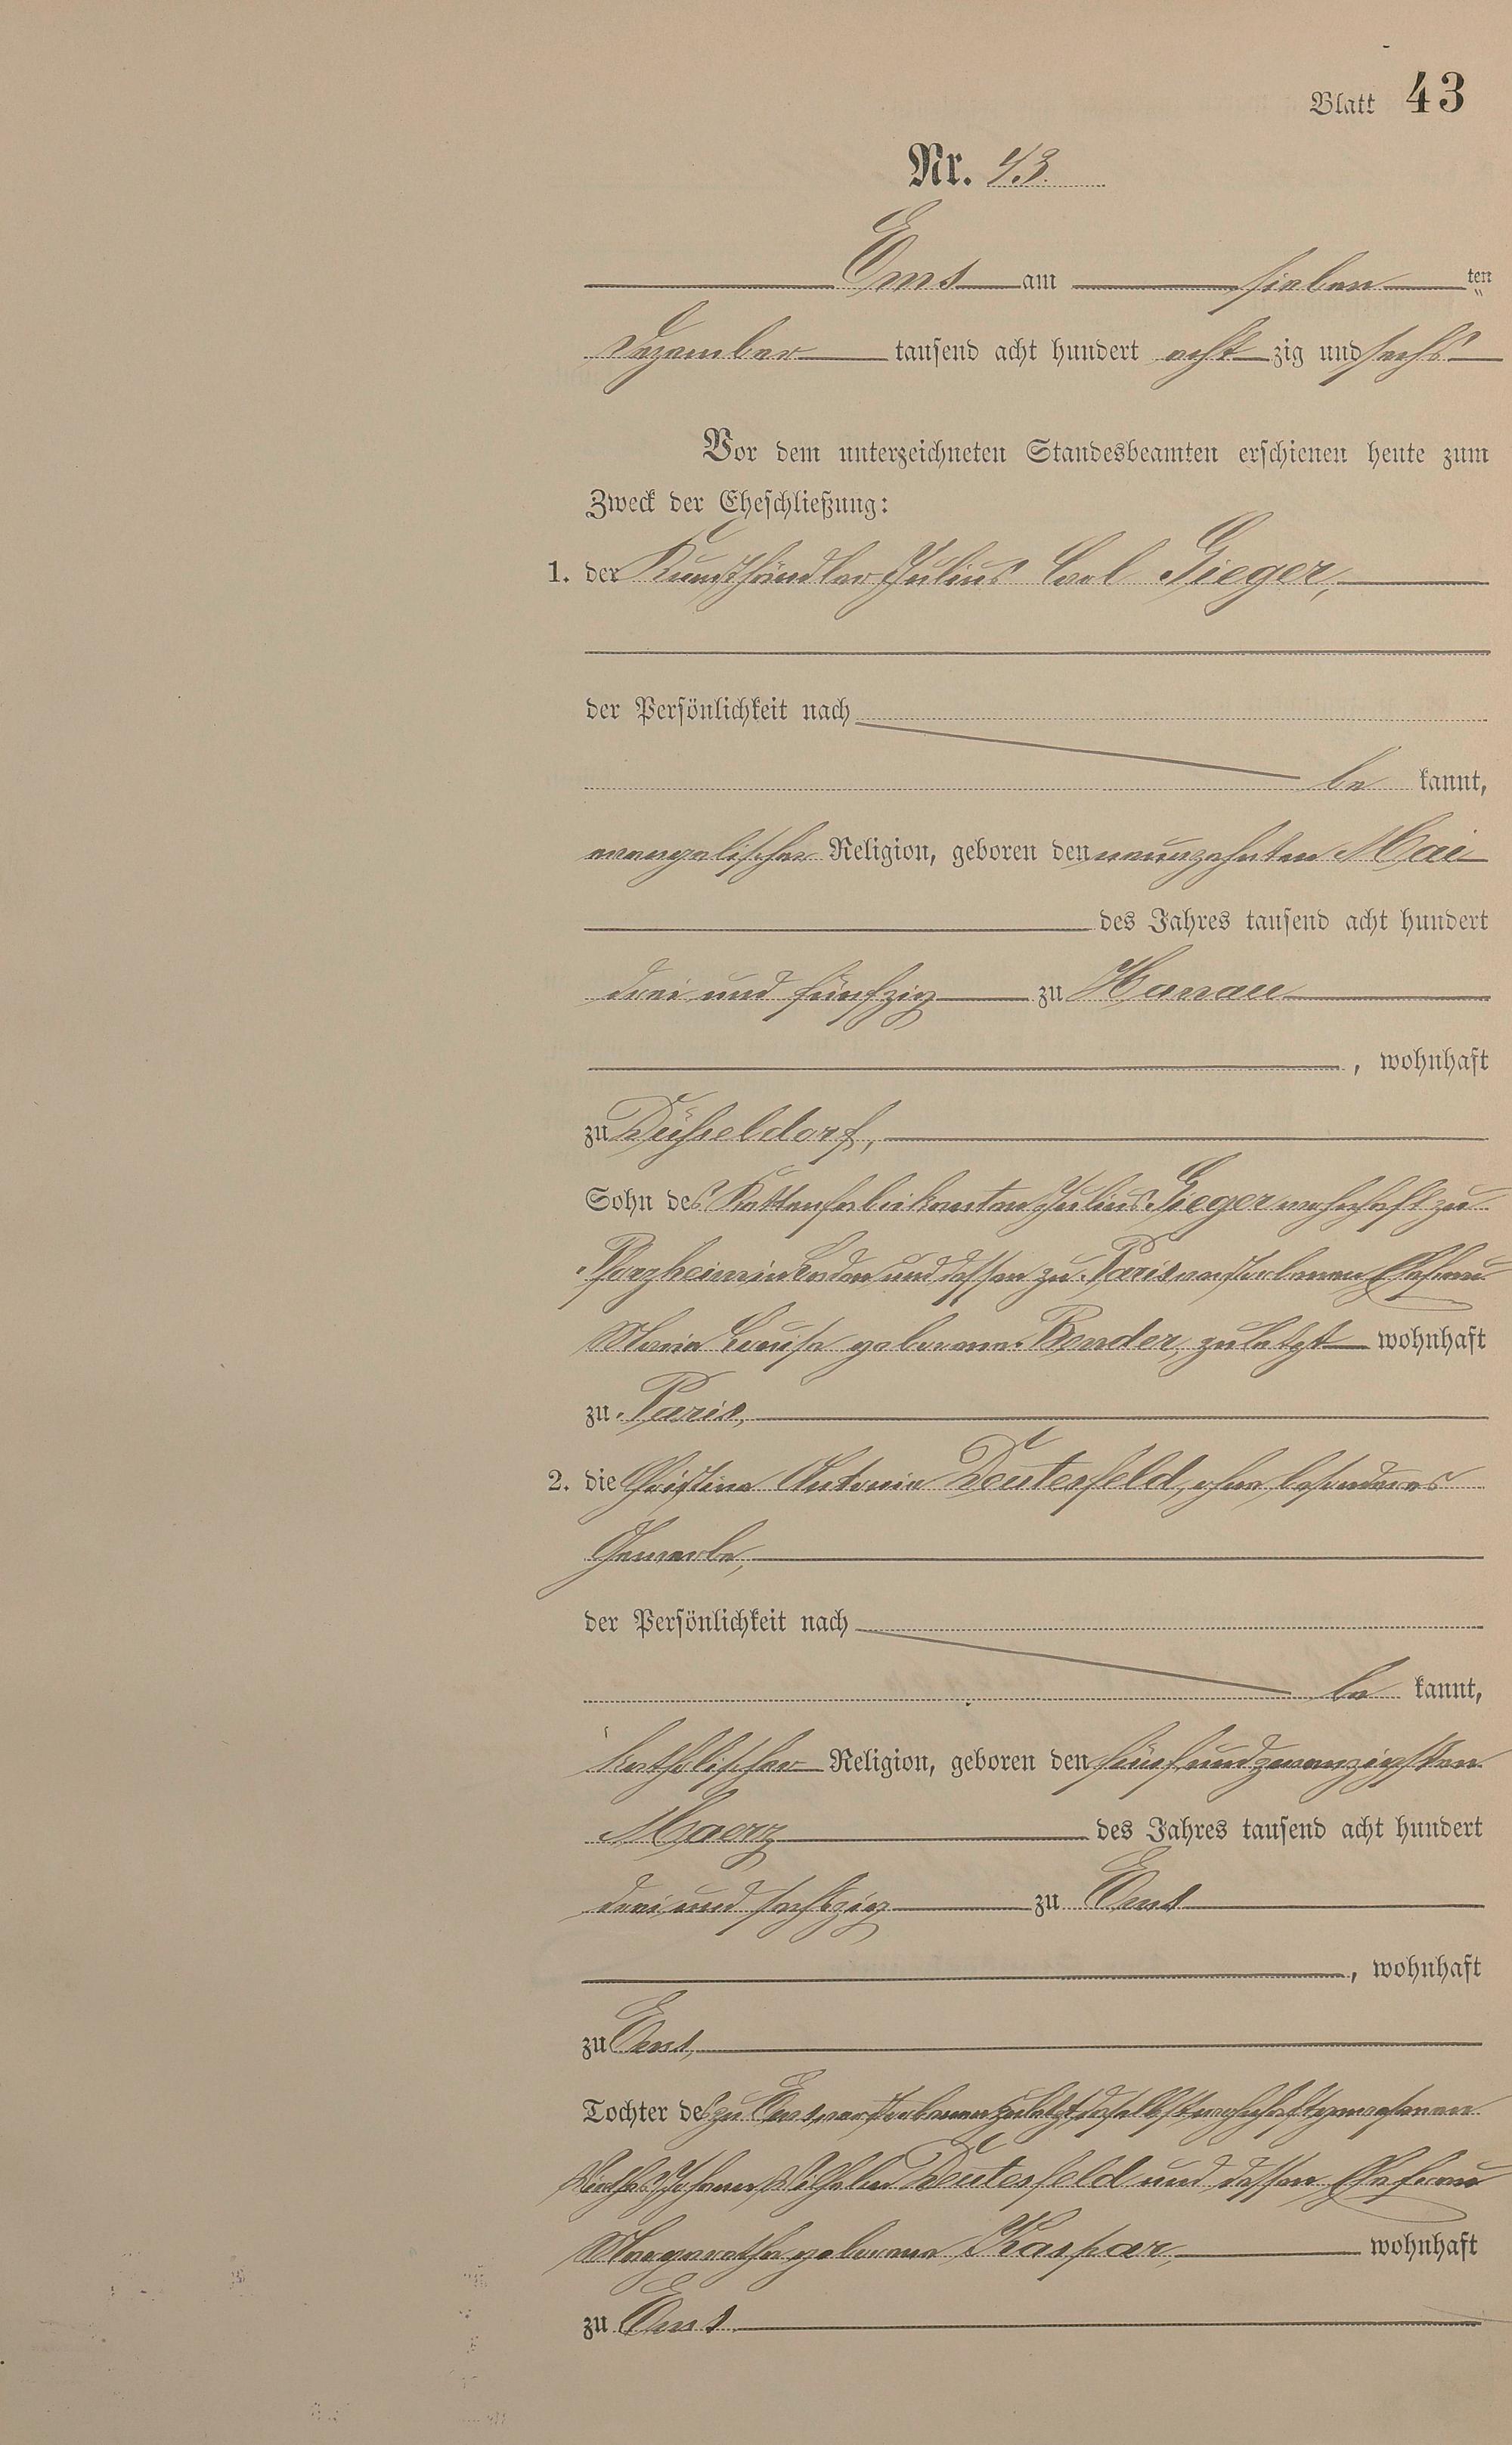 Blatt 43
Nr. 43.
Ems am sieben ten
Dezember tausend acht hundert acht zig und sechs
Vor dem unterzeichneten Standesbeamten erschienen heute zum
Zweck der Eheschließung:
1. der Kunsthändler Julius Carl Gieger,
der Persönlichkeit nach
be kannt,
evangelischer Religion, geboren den neunzehnten Mai
des Jahres tausend acht hundert
drei und fünfzig zu Hanau
, wohnhaft
zu Düsseldorf,
Sohn des Kettenfabrikanten Julius Gieger wohnhaft zu
Pforzheim in Baden und dessen zu Paris verstorbenen Ehefrau
Maria Louise geborene Bender, zuletzt wohnhaft
zu Paris,
2. die Christina Antonia Deutesfeld, ohne besonderes
Gewerbe,
der Persönlichkeit nach
be kannt,
katholischer Religion, geboren den fünf und zwanzigsten
Maerz des Jahres tausend acht hundert
drei und sechszig zu Ems
, wohnhaft
zu Ems,
Tochter des zu Ems verstorbenen zuletzt daselbst wohnhaft gewesenen
Wirthes Johann Wilhelm Deutesfeld und dessen Ehefrau
Margaretha geborene Kaspar, wohnhaft
zu Ems.